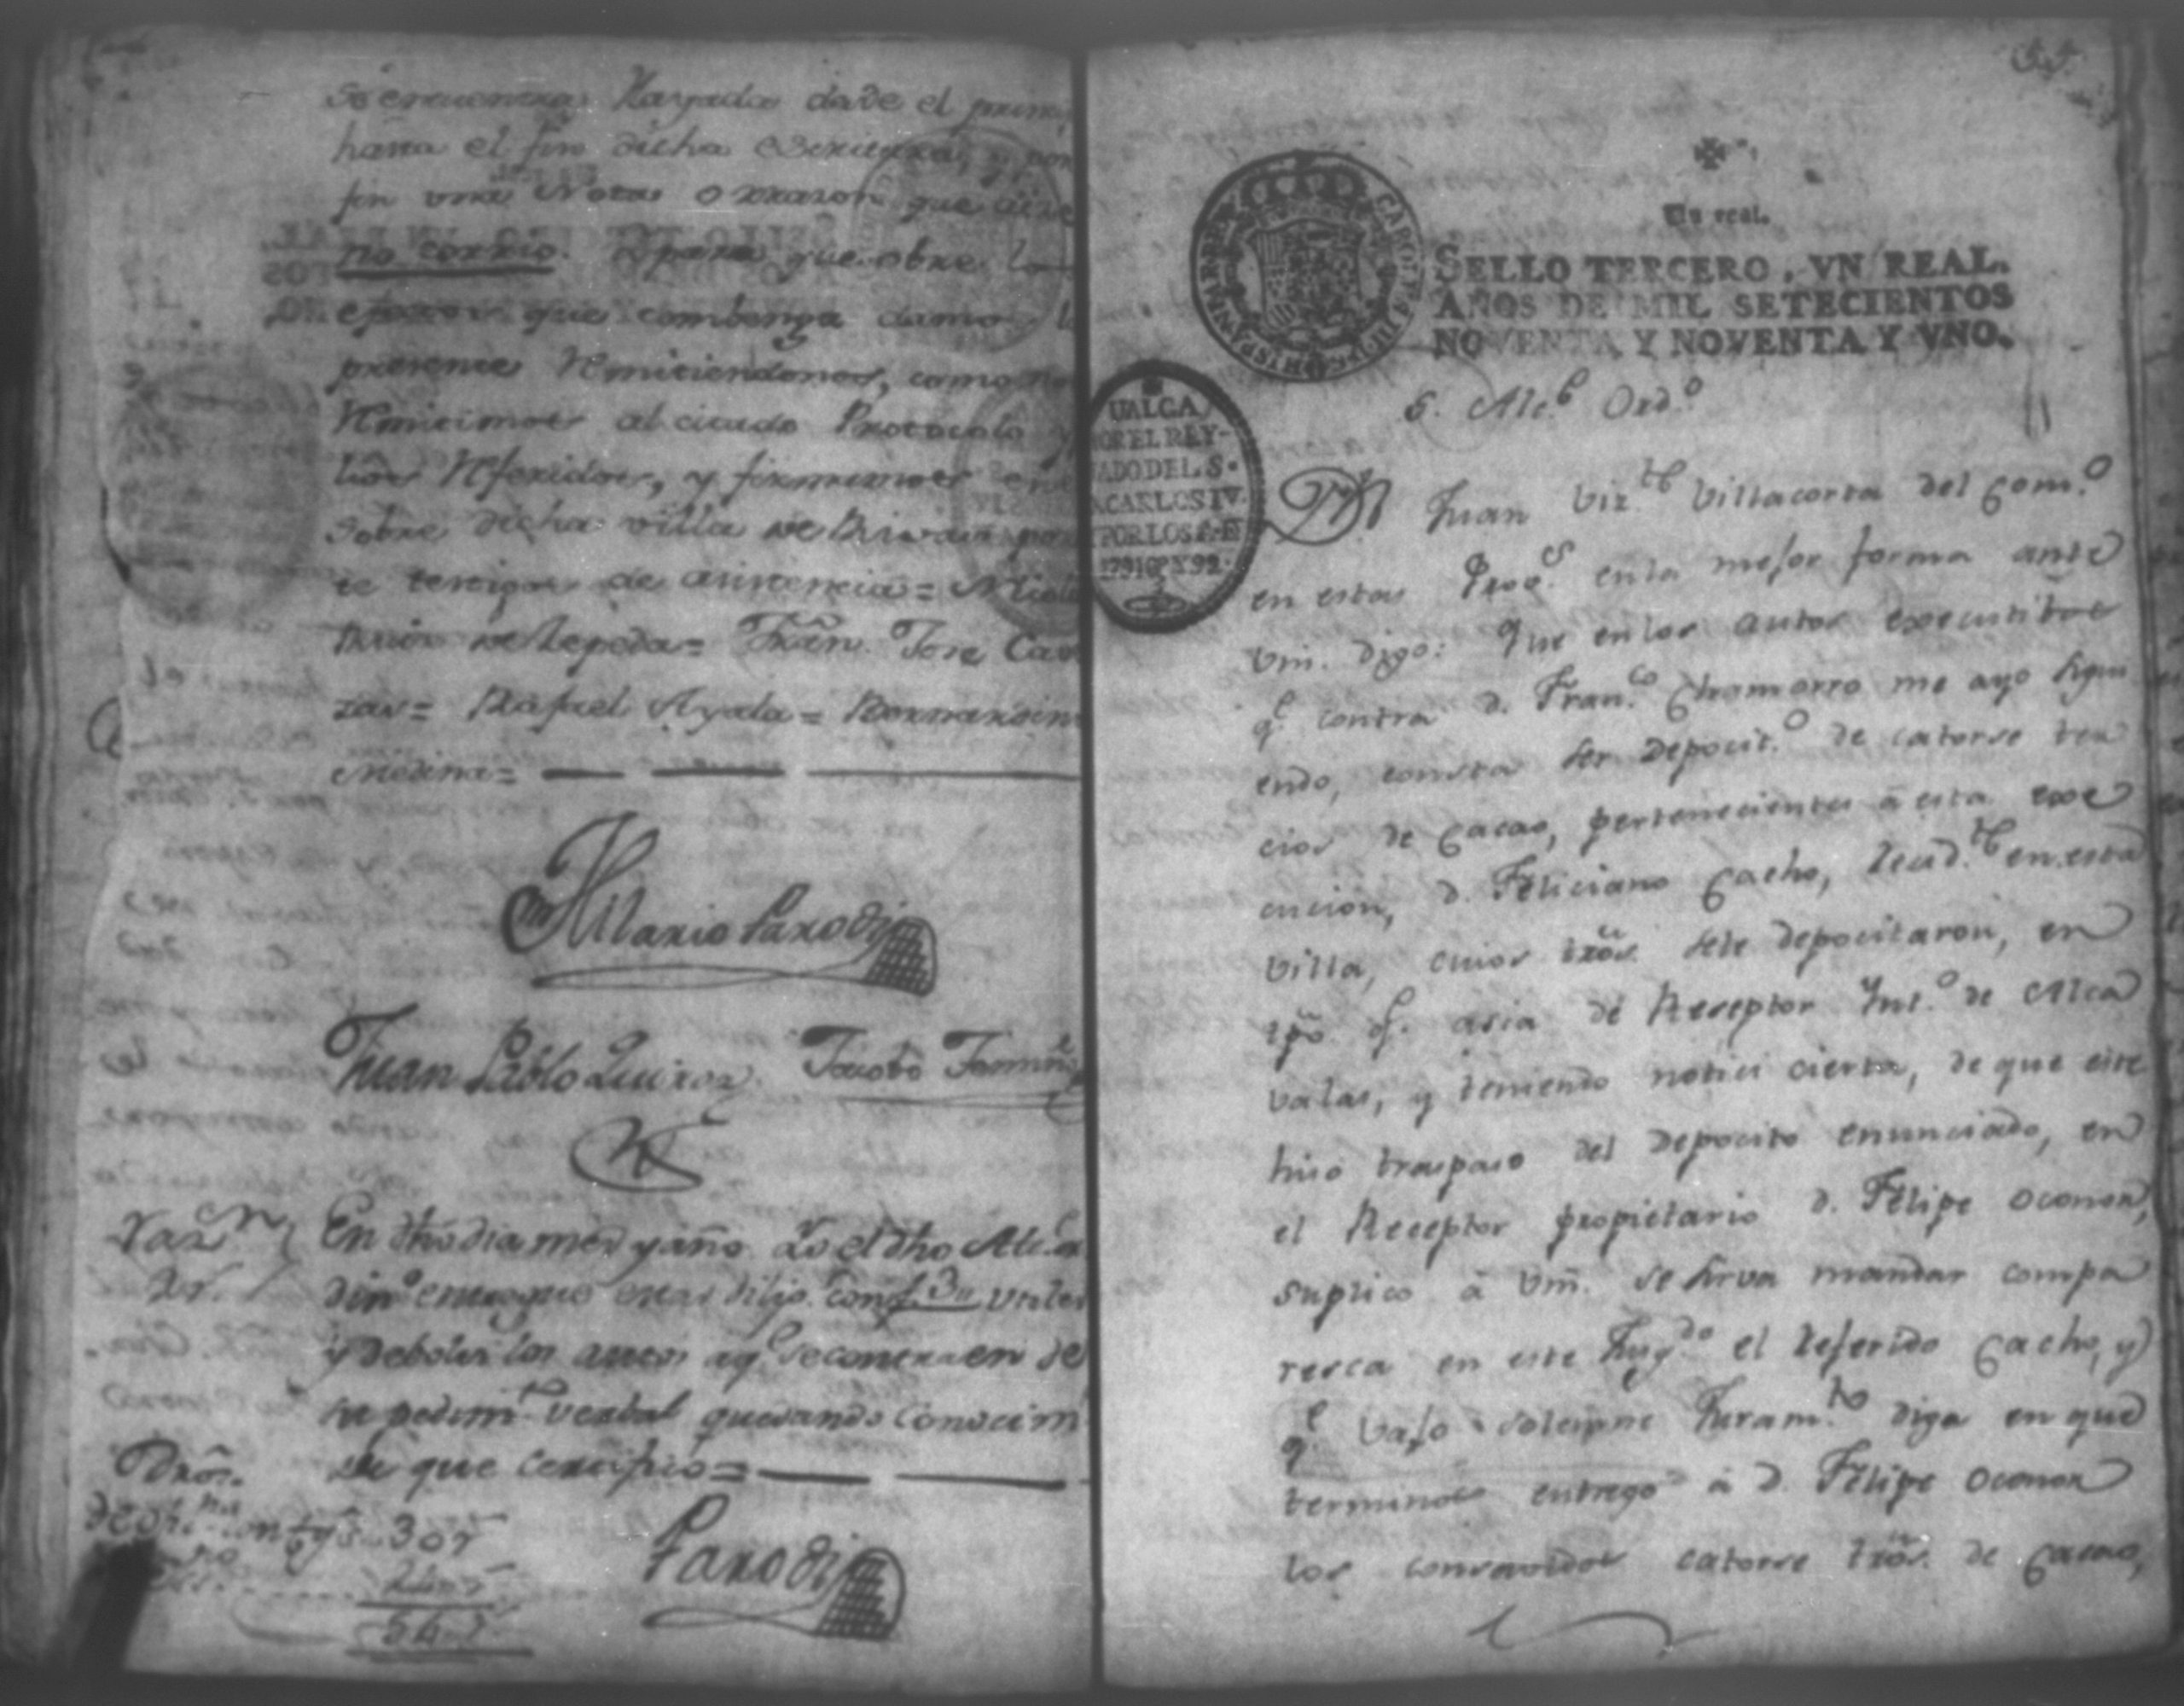 se encuentra Rayada dade el prim
hasta el fin dicha escritura, y por
fin una Nota o razon que dice
no corrio. Y para que obre los
efectos que combenga damos la
presente Remitiendonos, como nos
Remitimos al citado Protocolo y
lios Referidos, y firmamos en
sobre dicha villa de Rivas por
te testigos de asistencia =
Ruiz de Zepeda = Juan Jose Cas
zar = Rafael Ayala = Bernardin
Medina =
Hilario Parodi
Juan Pablo Quiroz. Jacobo
Razn
En dho dia mes y año. Yo el dho Alc.e or
din.o entregue estas dilijs. con f. 3 utiles
y debolvi los autos aq.e se contraen de
su pedim.to verbal quedando conocim
de que certifico =
Dros.
30 r
24 r
54 r
Parodi
54.
Un real.
SELLO TERCERO, VN REAL.
AÑOS DE MIL SETECIENTOS
NOVENTA Y NOVENTA Y VNO.
CAROLUS
HISPANIAR REX
VALGA
POR EL REY-
NADO DEL S.
CARLOS IV.
POR LOS A.s D.E
1791 Y 92.
S. Alc.e Ord.o
Dn Juan Viz.te Villacorta del Com.o
en estas Prov.s en la mejor forma ante
Vm. digo: Que en los autos executibos
q.e contra D. Fran.co Chamorro me ayo sigui
endo, consta ser Deposit.o de catorse ter
cios de Cacao, pertenecientes â esta exe
cucion, D. Feliciano Cacho, Recid.te en esta
Villa, cuios tros. sele depocitaron, en
tpo q.e asia de Receptor Int.o de Alca
valas, y teniendo notici cierta, de que este
hiso traspaso del Deposito enunciado, en
el Receptor propietario D. Felipe Oconor,
suplico â Vm. se sirva mandar compa
resca en este Juzg.do el Referido Cacho, y
q.e bajo solemne Juram.to diga en que
terminos entregò â D. Felipe Oconor
los consavidos catorse tros. de Cacao,